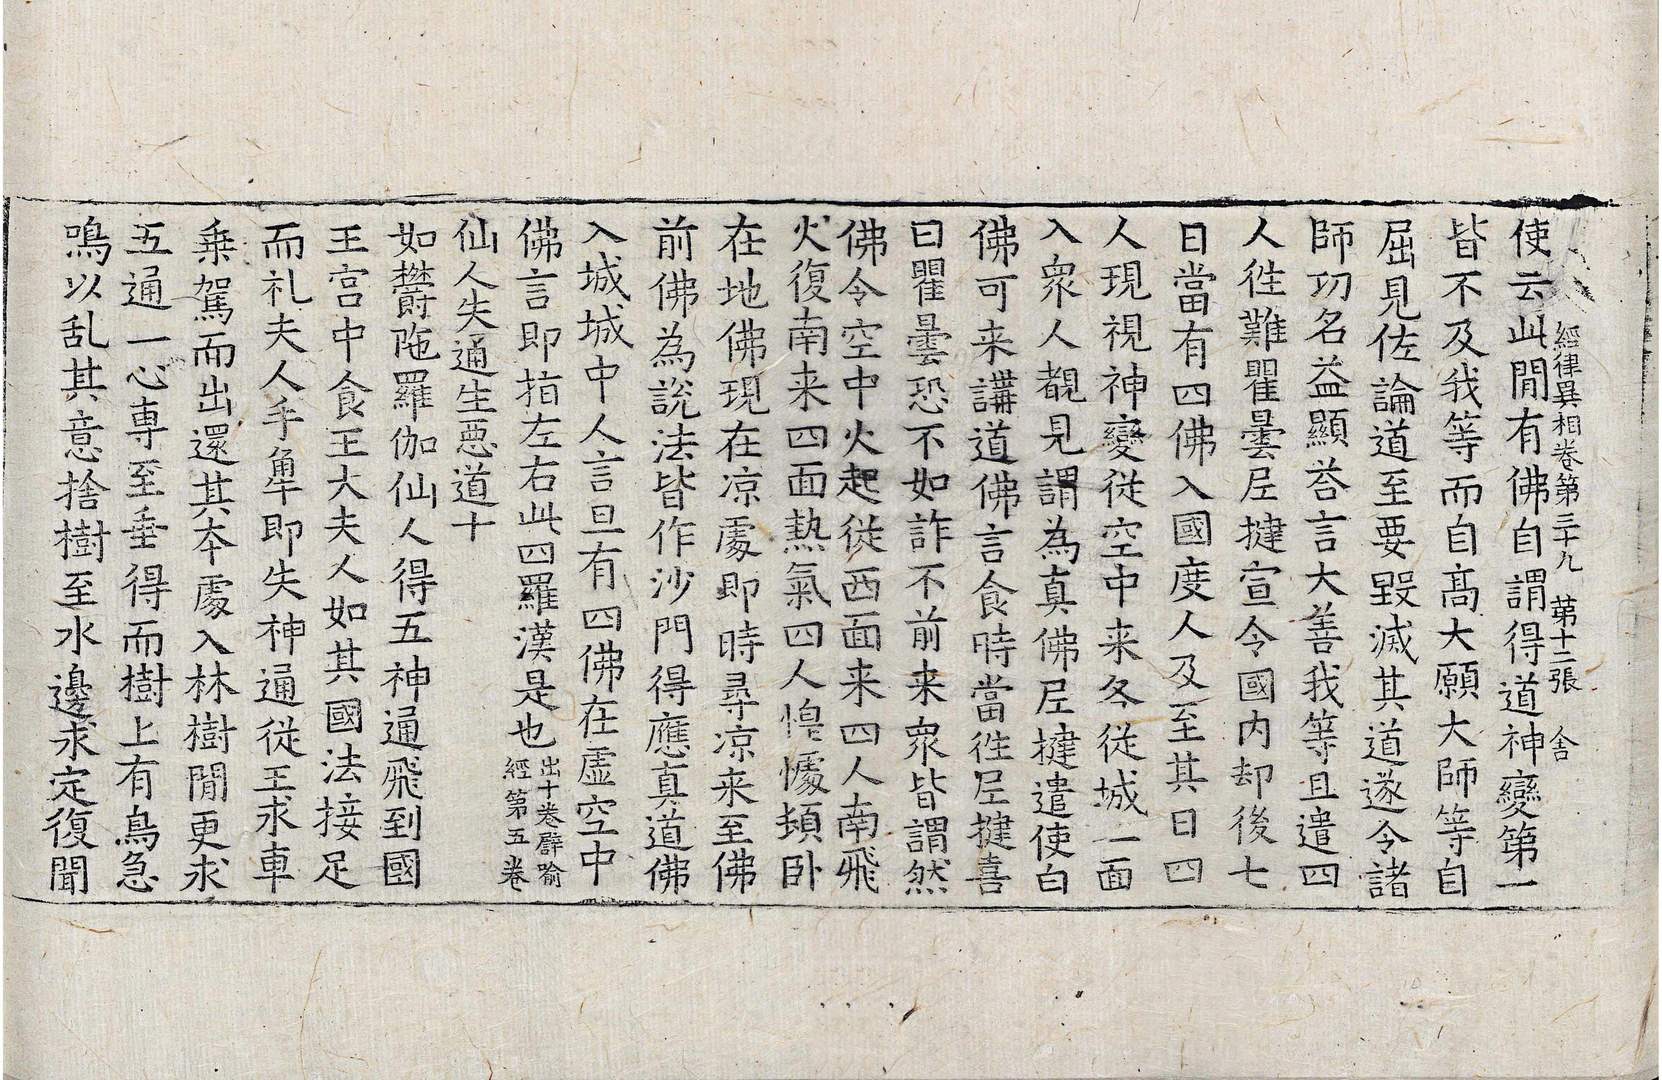 經律異相卷第三十九 第十二張 舍
使云此閒有佛自謂得道神變第一
皆不及我等而自高大願大師等自
屈見佐論道至要毀滅其道遂令諸
師功名益顯荅言大善我等且遣四
人徃難瞿曇尼揵宣令國内却後七
日當有四佛入國度人及至其日四
人現視神變從空中来各從城一面
入衆人覩見謂為真佛尼揵遣使白
佛可来講道佛言食時當徃尼揵喜
曰瞿曇恐不如詐不前来衆皆謂然
佛令空中火起從西面来四人南飛
火復南来四面熱氣四人惶懅頓卧
在地佛現在凉處即時尋凉来至佛
前佛為說法皆作沙門得應真道佛
入城城中人言旦有四佛在虛空中
佛言即指左右此四羅漢是也
出十卷辟喻
經第五卷
仙人失通生惡道十
如欝陁羅伽仙人得五神通飛到國
王宮中食王大夫人如其國法接足
而礼夫人手觸即失神通從王求車
乗駕而出還其本處入林樹閒更求
五通一心専至垂得而樹上有鳥急
鳴以乱其意捨樹至水邊求定復聞